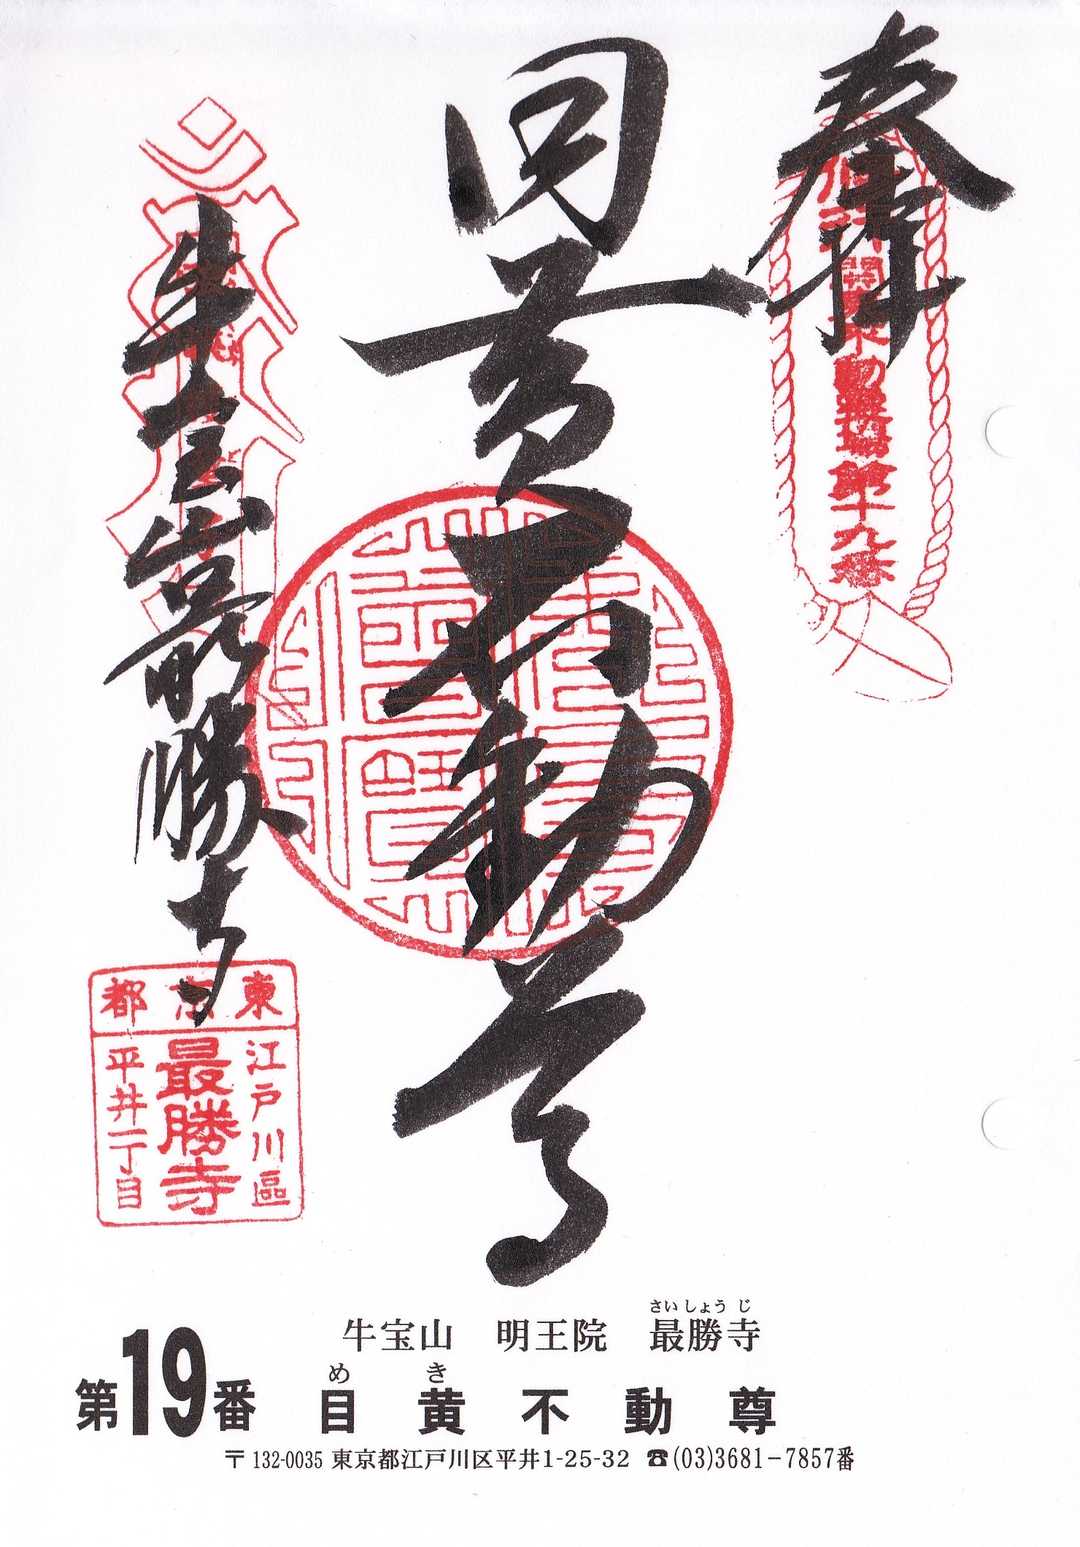 奉拝
関東不動霊場第十九番
目黄不動尊
牛宝山最勝寺
東京都
江戸川區
最勝寺
平井一丁目
さいしょうじ
牛宝山 明王院 最勝寺
めき
第19番 目黄不動尊
〒132-0035 東京都江戸川区平井1-25-32 ☎(03)3681-7857番